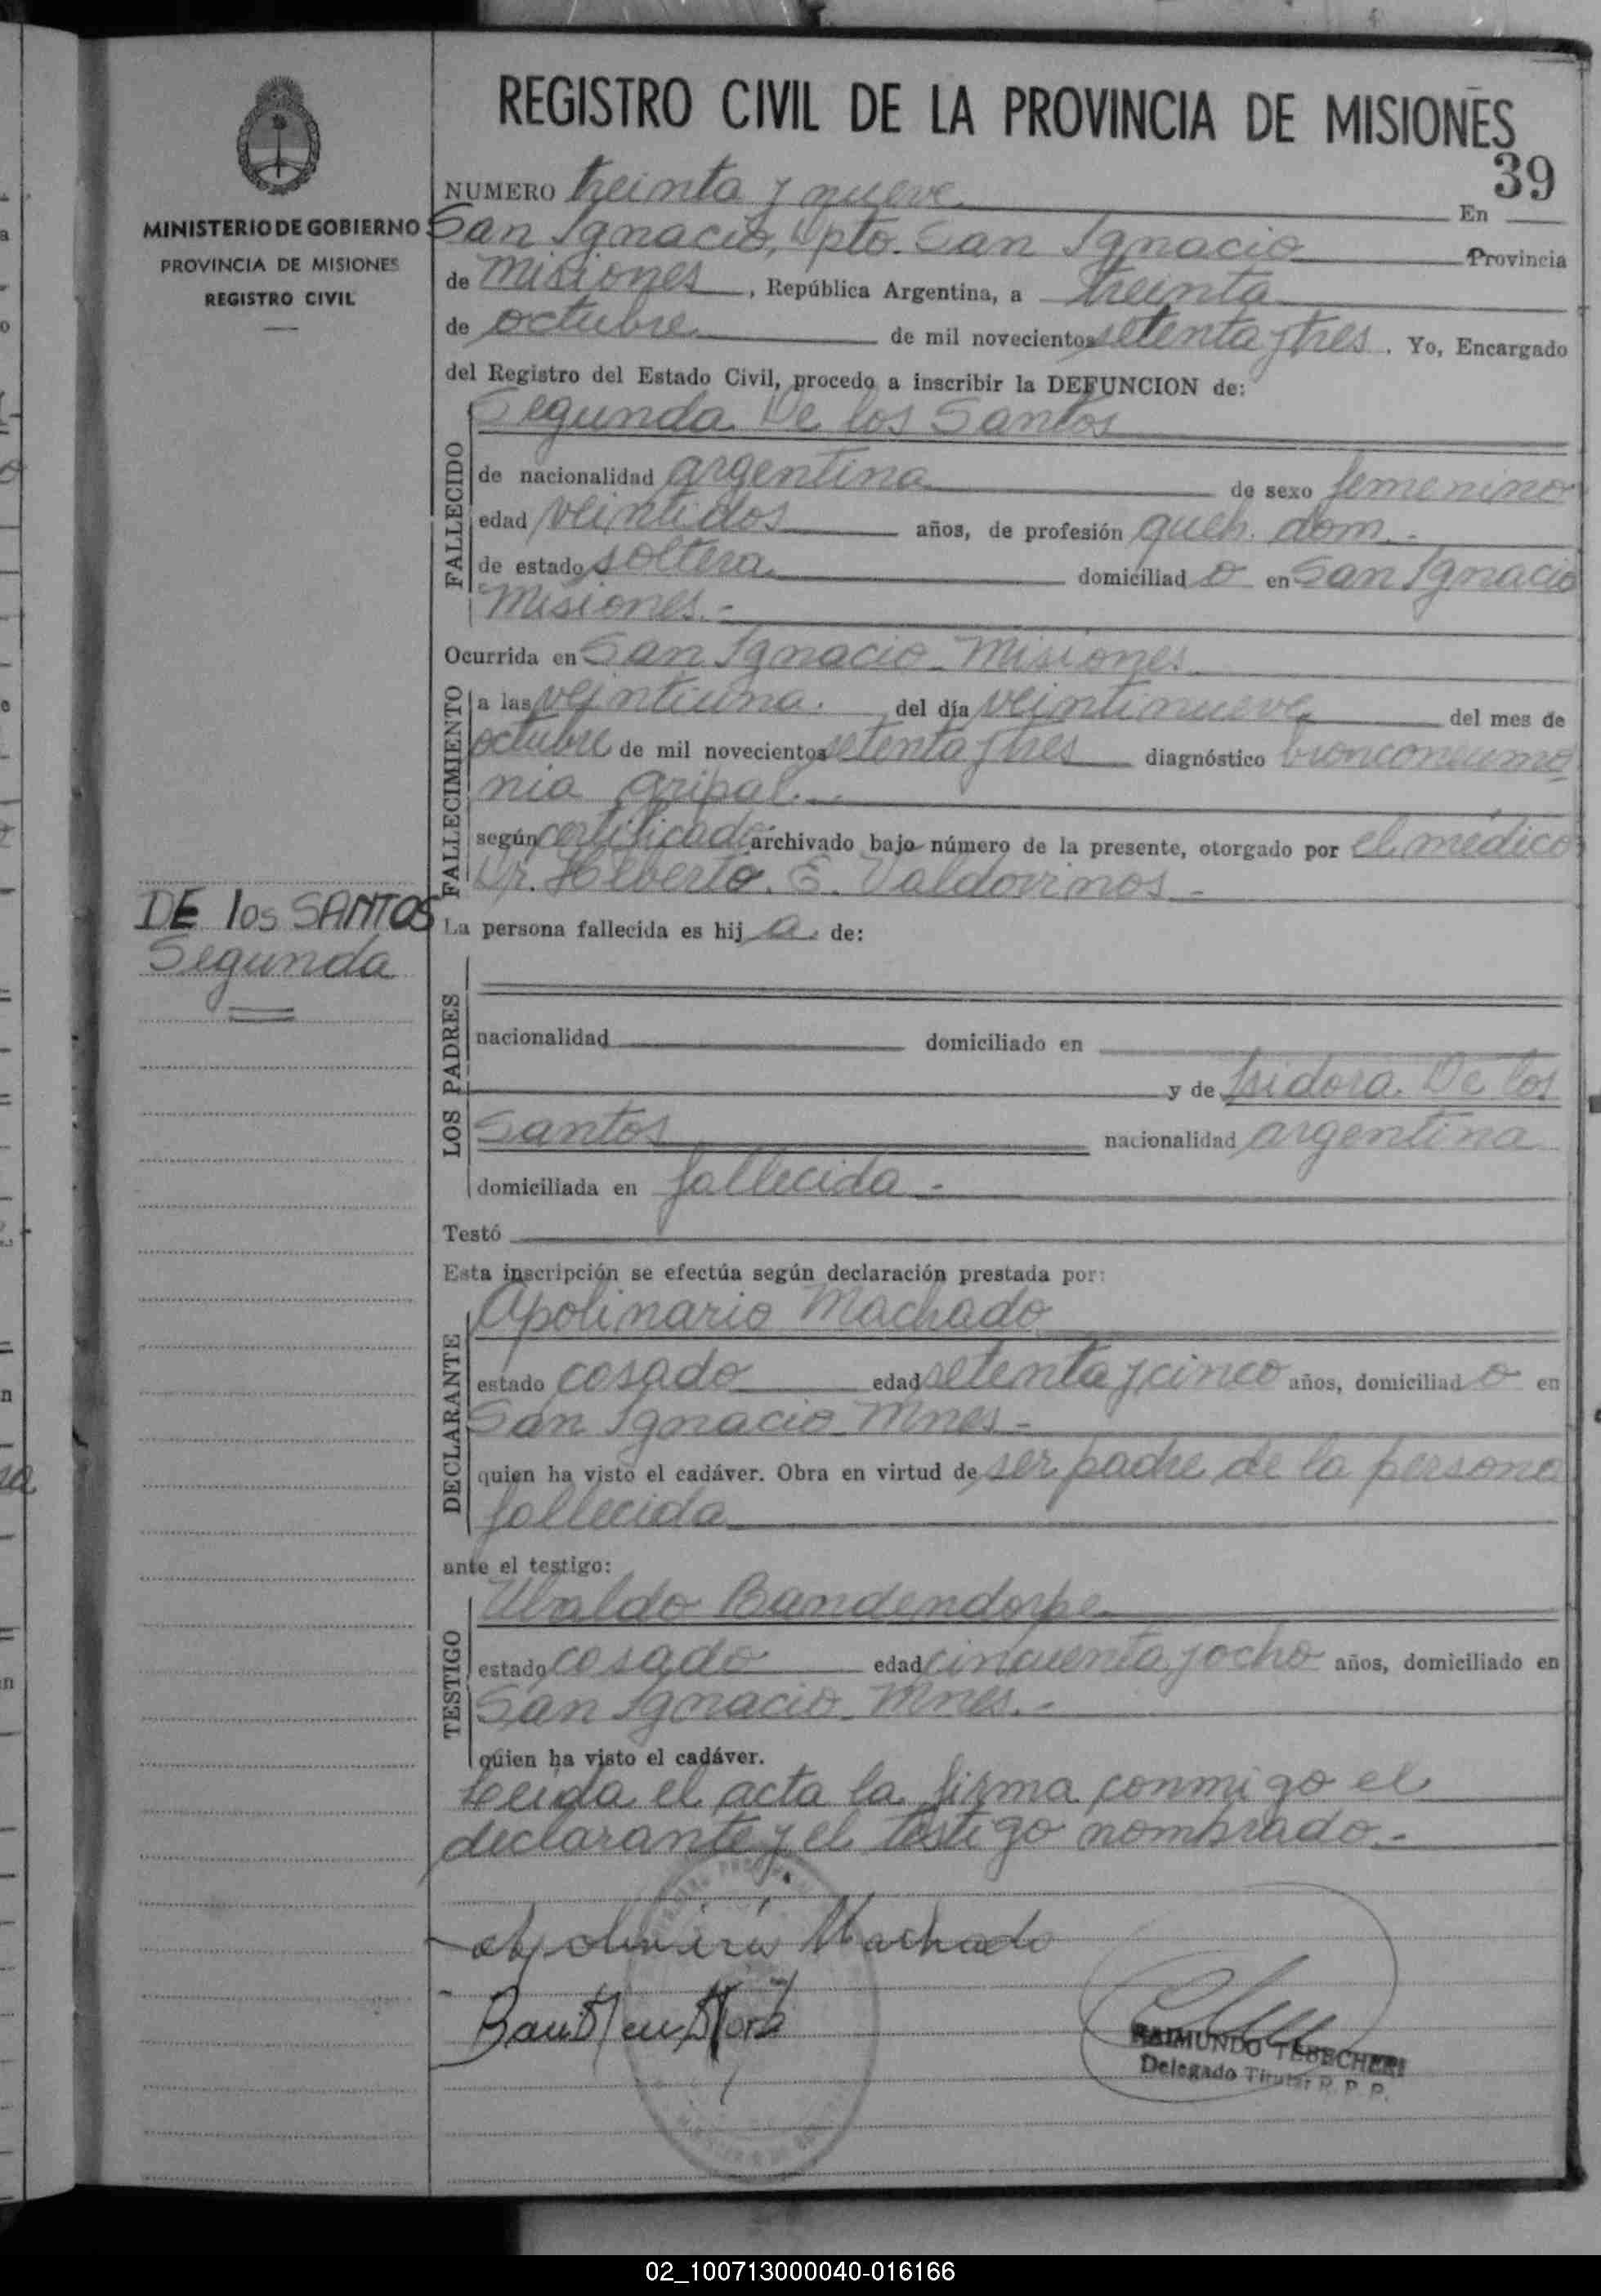 REGISTRO CIVIL DE LA PROVINCIA DE MISIONES
39
MINISTERIO DE GOBIERNO
PROVINCIA DE MISIONES
REGISTRO CIVIL
NUMERO treinta y nueve En
San Ignacio, Dpto. San Ignacio Provincia
de Misiones, República Argentina, a treinta
de octubre de mil novecientos setenta y tres. Yo, Encargado
del Registro del Estado Civil, procedo a inscribir la DEFUNCION de:
FALLECIDO
Segunda De los Santos
de nacionalidad argentina de sexo femenino
edad veintidos años, de profesión queh. dom.-
de estado soltera domiciliad o en San Ignacio
Misiones.-
Ocurrida en San Ignacio - Misiones
FALLECIMIENTO
a las veintiuna. del día veintinueve del mes de
octubre de mil novecientos setenta y tres diagnóstico bronconeumo
nia gripal.-
según certificado archivado bajo número de la presente, otorgado por el médico
Dr. Hilberto. E. Valdovinos -
DE los SANTOS
Segunda
La persona fallecida es hij a de:
LOS PADRES
nacionalidad domiciliado en
y de Isidora De los
Santos nacionalidad argentina
domiciliada en fallecida -
Testó
Esta inscripción se efectúa según declaración prestada por:
DECLARANTE
Apolinario Machado
estado casado edad setenta y cinco años, domiciliad o en
San Ignacio - Mnes -
quien ha visto el cadáver. Obra en virtud de ser padre de la persona
fallecida
ante el testigo:
TESTIGO
Ubaldo Bandendorpe
estado casado edad cincuenta y ocho años, domiciliado en
San Ignacio - Mnes.-
quien ha visto el cadáver.
Leida el acta la firma conmigo el
declarante y el testigo nombrado.-
Machado
RAIMUNDO TEBECHERI
Delegado Titular R. P. P.
02_100713000040-016166